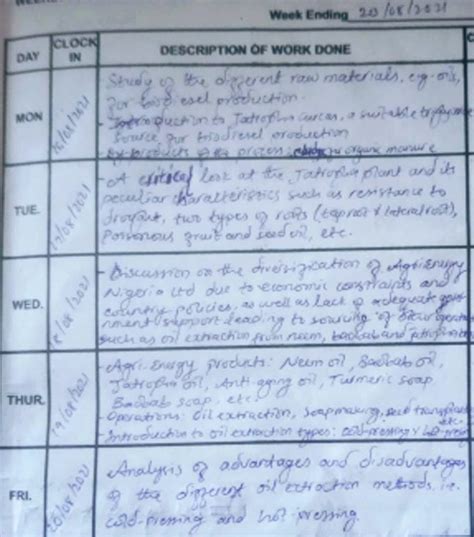 Week Ending 20/08/2021
DAY CLOCK IN DESCRIPTION OF WORK DONE
MON 16/08/2021
- Study of the different raw materials, e.g. oils,
for biodiesel production.
- Introduction to Jatropha curcas, a suitable
source for biodiesel production
- By products of the process: organic manure
TUE. 17/08/2021
- A critical look at the Jatropha plant and its
peculiar characteristics such as resistance to
drought, two types of roots (taproot & lateral root),
Poisonous fruit and seed oil, etc.
WED. 18/08/2021
- Discussion on the diversification of Agri Energy
Nigeria Ltd due to economic constraints and
country policies, as well as lack of adequate gover
nment support leading to sourcing of
such as oil extraction from neem, baobab and
THUR. 19/08/2021
- Agri-Energy products: Neem oil, Baobab oil,
Jatropha oil, Anti-aging oil, Turmeric soap,
Baobab soap, etc.
- Operations: Oil extraction, Soap making, seed etc.
- Introduction to oil extraction types: cold-pressing & hot-pressing
FRI. 20/08/2021
Analysis of advantages and disadvantages
of the different oil extraction methods, i.e.
cold-pressing and hot-pressing.